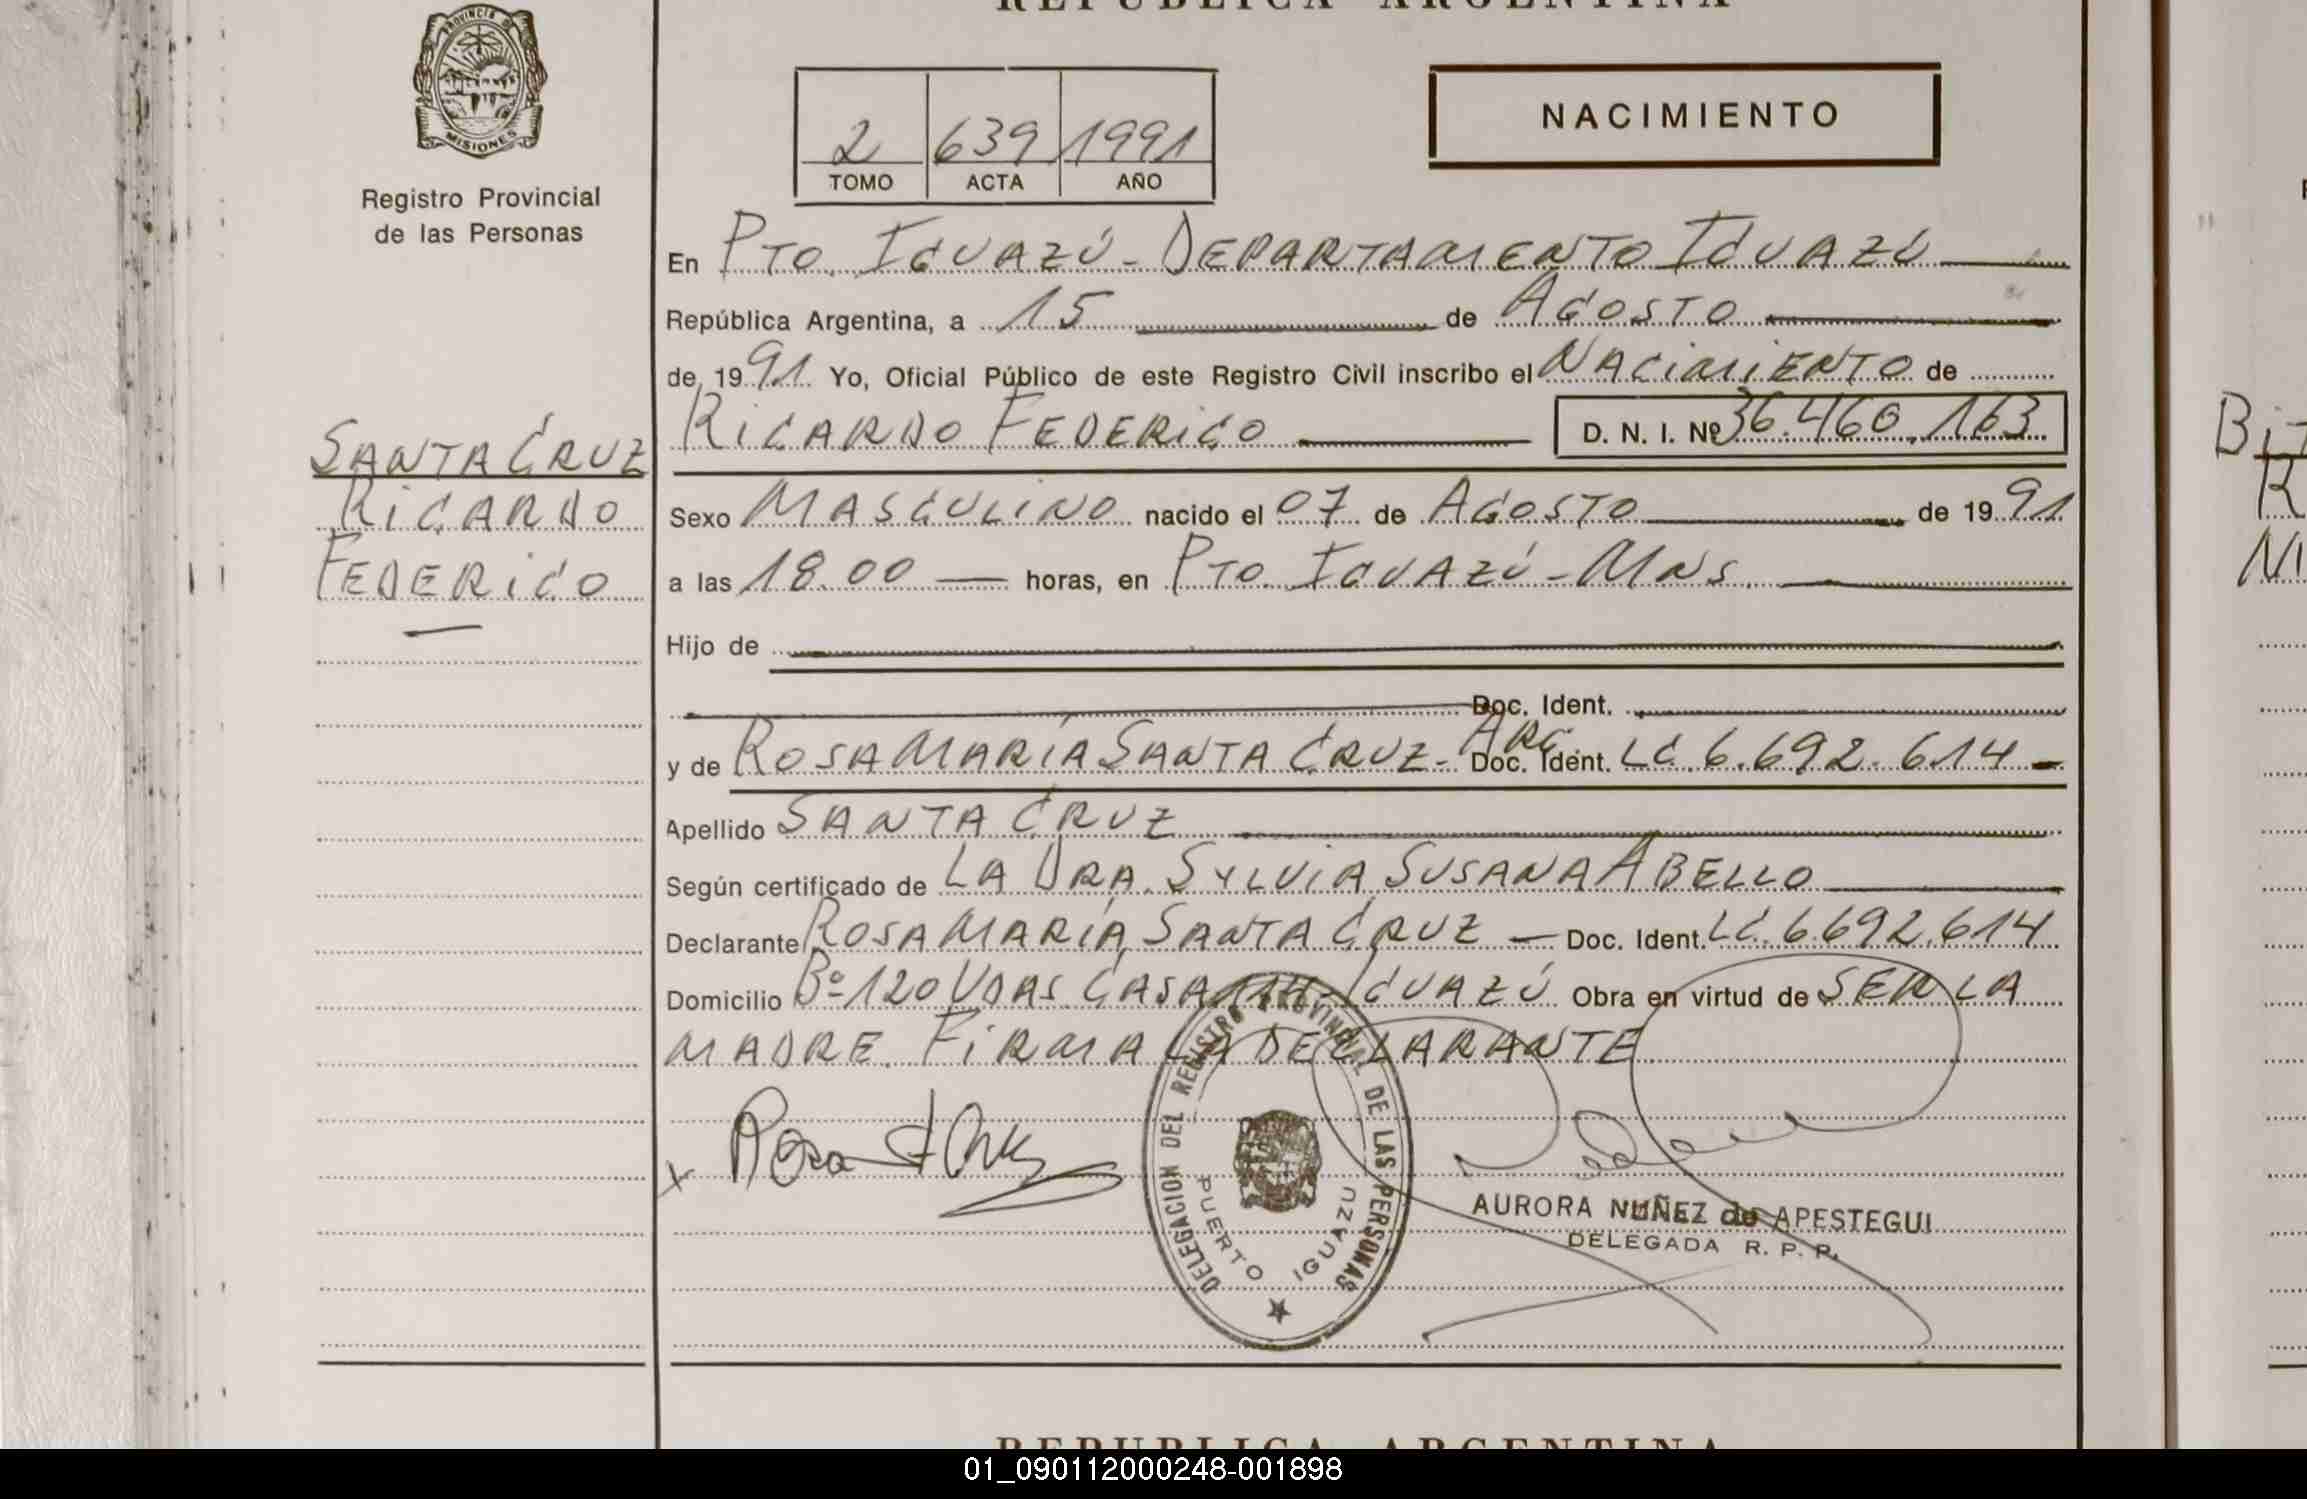 REPUBLICA ARGENTINA
PROVINCIA DE MISIONES
Registro Provincial
de las Personas
2 639 1991
TOMO ACTA AÑO
NACIMIENTO
En PTO. IGUAZÚ - DEPARTAMENTO IGUAZÚ
República Argentina, a 15 de AGOSTO
de 1991 Yo, Oficial Público de este Registro Civil inscribo el NACIMIENTO de
RICARDO FEDERICO D. N. I. Nº 36.460.163
SANTA CRUZ
RICARDO
FEDERICO
Sexo MASCULINO nacido el 07 de AGOSTO de 1991
a las 18.00 horas, en PTO. IGUAZÚ - MNS.
Hijo de
Doc. Ident.
y de ROSA MARÍA SANTA CRUZ - ARG. Doc. Ident. LC. 6.692.614
Apellido SANTA CRUZ
Según certificado de LA DRA. SYLVIA SUSANA ABELLO
Declarante ROSA MARÍA SANTA CRUZ - Doc. Ident. LC. 6.692.614
Domicilio Bº 120 VDAS. CASA 114 - IGUAZÚ Obra en virtud de SER LA
MADRE. FIRMA LA DECLARANTE
DELEGACION DEL REGISTRO PROVINCIAL DE LAS PERSONAS
PUERTO IGUAZU
AURORA NUÑEZ de APESTEGUI
DELEGADA R. P. P.
REPUBLICA ARGENTINA
01_090112000248-001898